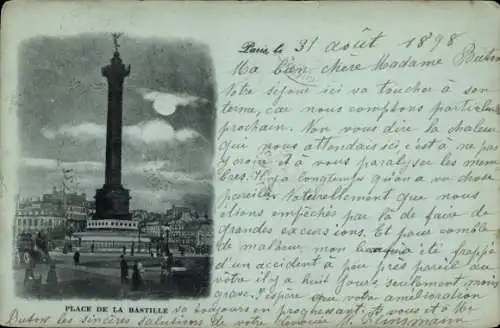 Paris le 31 août 1898
Ma bien chère Madame Butin
Notre séjour ici va toucher à son
terme, car nous comptons partir le
prochain. Non vous dire la chaleur
qui nous attendait ici, c'est à ne pas
y croire et à vous paralyser les mem
bres. Il y a longtemps qu'on a vu chose
pareille. Naturellement que nous
étions empêchés par là de faire de
grandes excursions. Et pour comble
de malheur mon a été frappé
d'un accident à peu près pareil au
vôtre il y a huit jours seulement moins
grave. J'espère que votre amélioration
PLACE DE LA BASTILLE
va toujours en progressant. Je vous et à M
Butin les sincères salutations de votre